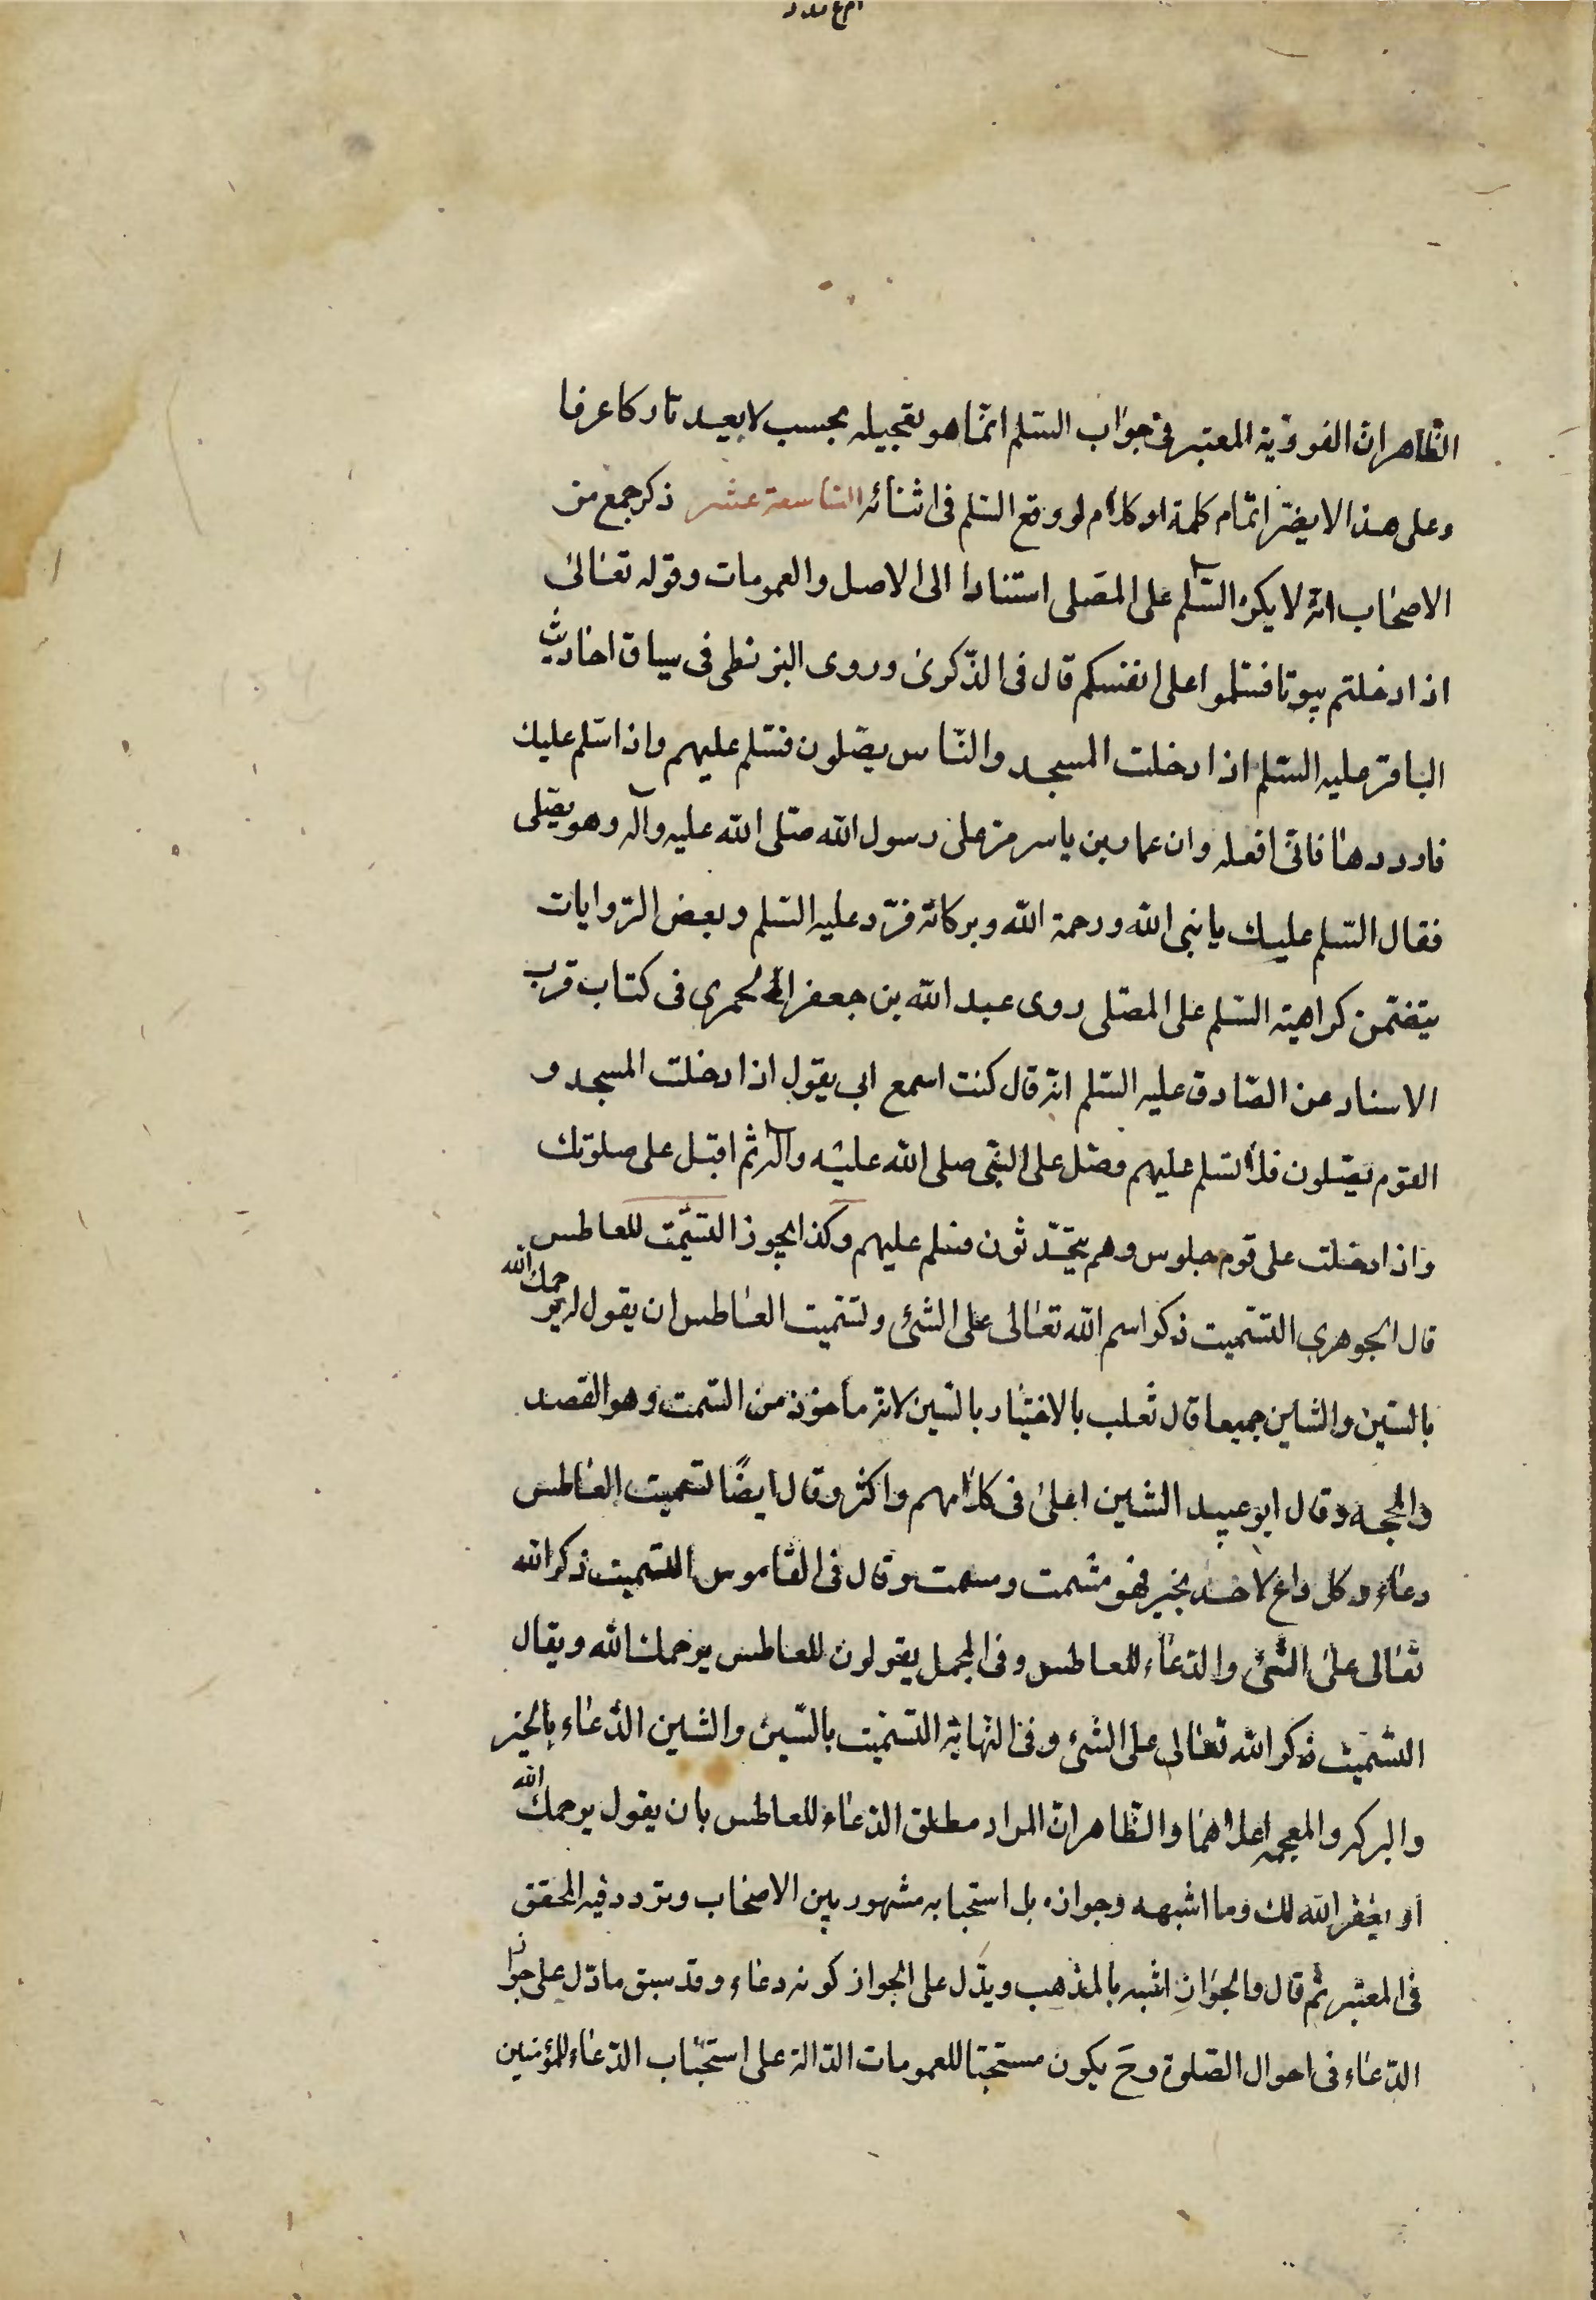 الظاهر ان الفورية المعتبر في جواب السّلم انّما هو تعجيله بحسب لا يعيد تاركا عرفا
وعلى هذا لا يضرّ اتمام كلمة او كلام لو وقع السّلم فى اثنائه التاسعة عشر ذكر جمع من
الاصحاب انه لا يكره السّلم على المصلى استنادا الى الاصل والعمومات وقوله تعالى
اذا دخلتم بيوتا فسلموا على انفسكم قال فى الذّكرى وروى البزنطى فى سياق احاديث
الباقر عليه السّلم اذا دخلت المسجد والنّاس يصّلون فسّلم عليهم واذا سّلم عليك
فارددها فانّى افعله وان عمار بن ياسر مرّ على رسول الله صّلى الله عليه وآله وهو يصّلى
فقال السّلم عليك يا نبى الله ورحمة الله وبركاته فرّد عليه السّلم وبعض الرّوايات
يتضمن كراهية السّلم على المصّلى روى عبد الله بن جعفر الحمرى فى كتاب قرب
الاسناد عن الصّادق عليه السّلم انّه قال كنت اسمع ابى يقول اذا دخلت المسجد و
القوم يصّلون فلا تسّلم عليهم وصّل على النبّى صلى الله عليه وآله ثم اقبل على صلوتك
واذا دخلت على قوم جلوس وهم يتحّدثون فسّلم عليهم وكذا يجوز التسمّت للعاطس
قال الجوهرى التسّميت ذكر اسم الله تعالى على الشئ وتسميت العاطس ان يقول له يرحمك الله
بالسّين والشّين جميعا قال ثعلب بالاختيار بالسّين لانه مأخوذ من السّمت وهو القصد
والمحجه وقال ابو عبيد الشين اعلى فى كلامهم واكثر وقال ايضًا تسميت العاطس
دعاء وكل داع لاحد بخير فهو مشمت ومسمت وقال فى القاموس التسميت ذكر الله
تعالى على الشئ والدّعاء للعاطس وفى المجمل يقولون للعاطس يرحمك الله ويقال
التسميت ذكر الله تعالى على الشئ وفى النّهاية التسميت بالسّين والشين الدّعاء بالخير
والبركه والمعجمه اعلاهما والظّاهر انّ المراد مطلق الدّعاء للعاطس بان يقول يرحمك الله
او يغفر الله لك وما اشبهه وجوازه بل استحبابه مشهور بين الاصحاب وتردد فيه المحقق
فى المعتبر ثم قال والجواز اشبه بالمذهب ويدّل على الجواز كونه دعاء وقد سبق ما دّل على جواز
الدّعاء فى احوال الصّلوة وحَ يكون مستحبّا للعمومات الدّالة على استحباب الدّعاء للمؤمنين